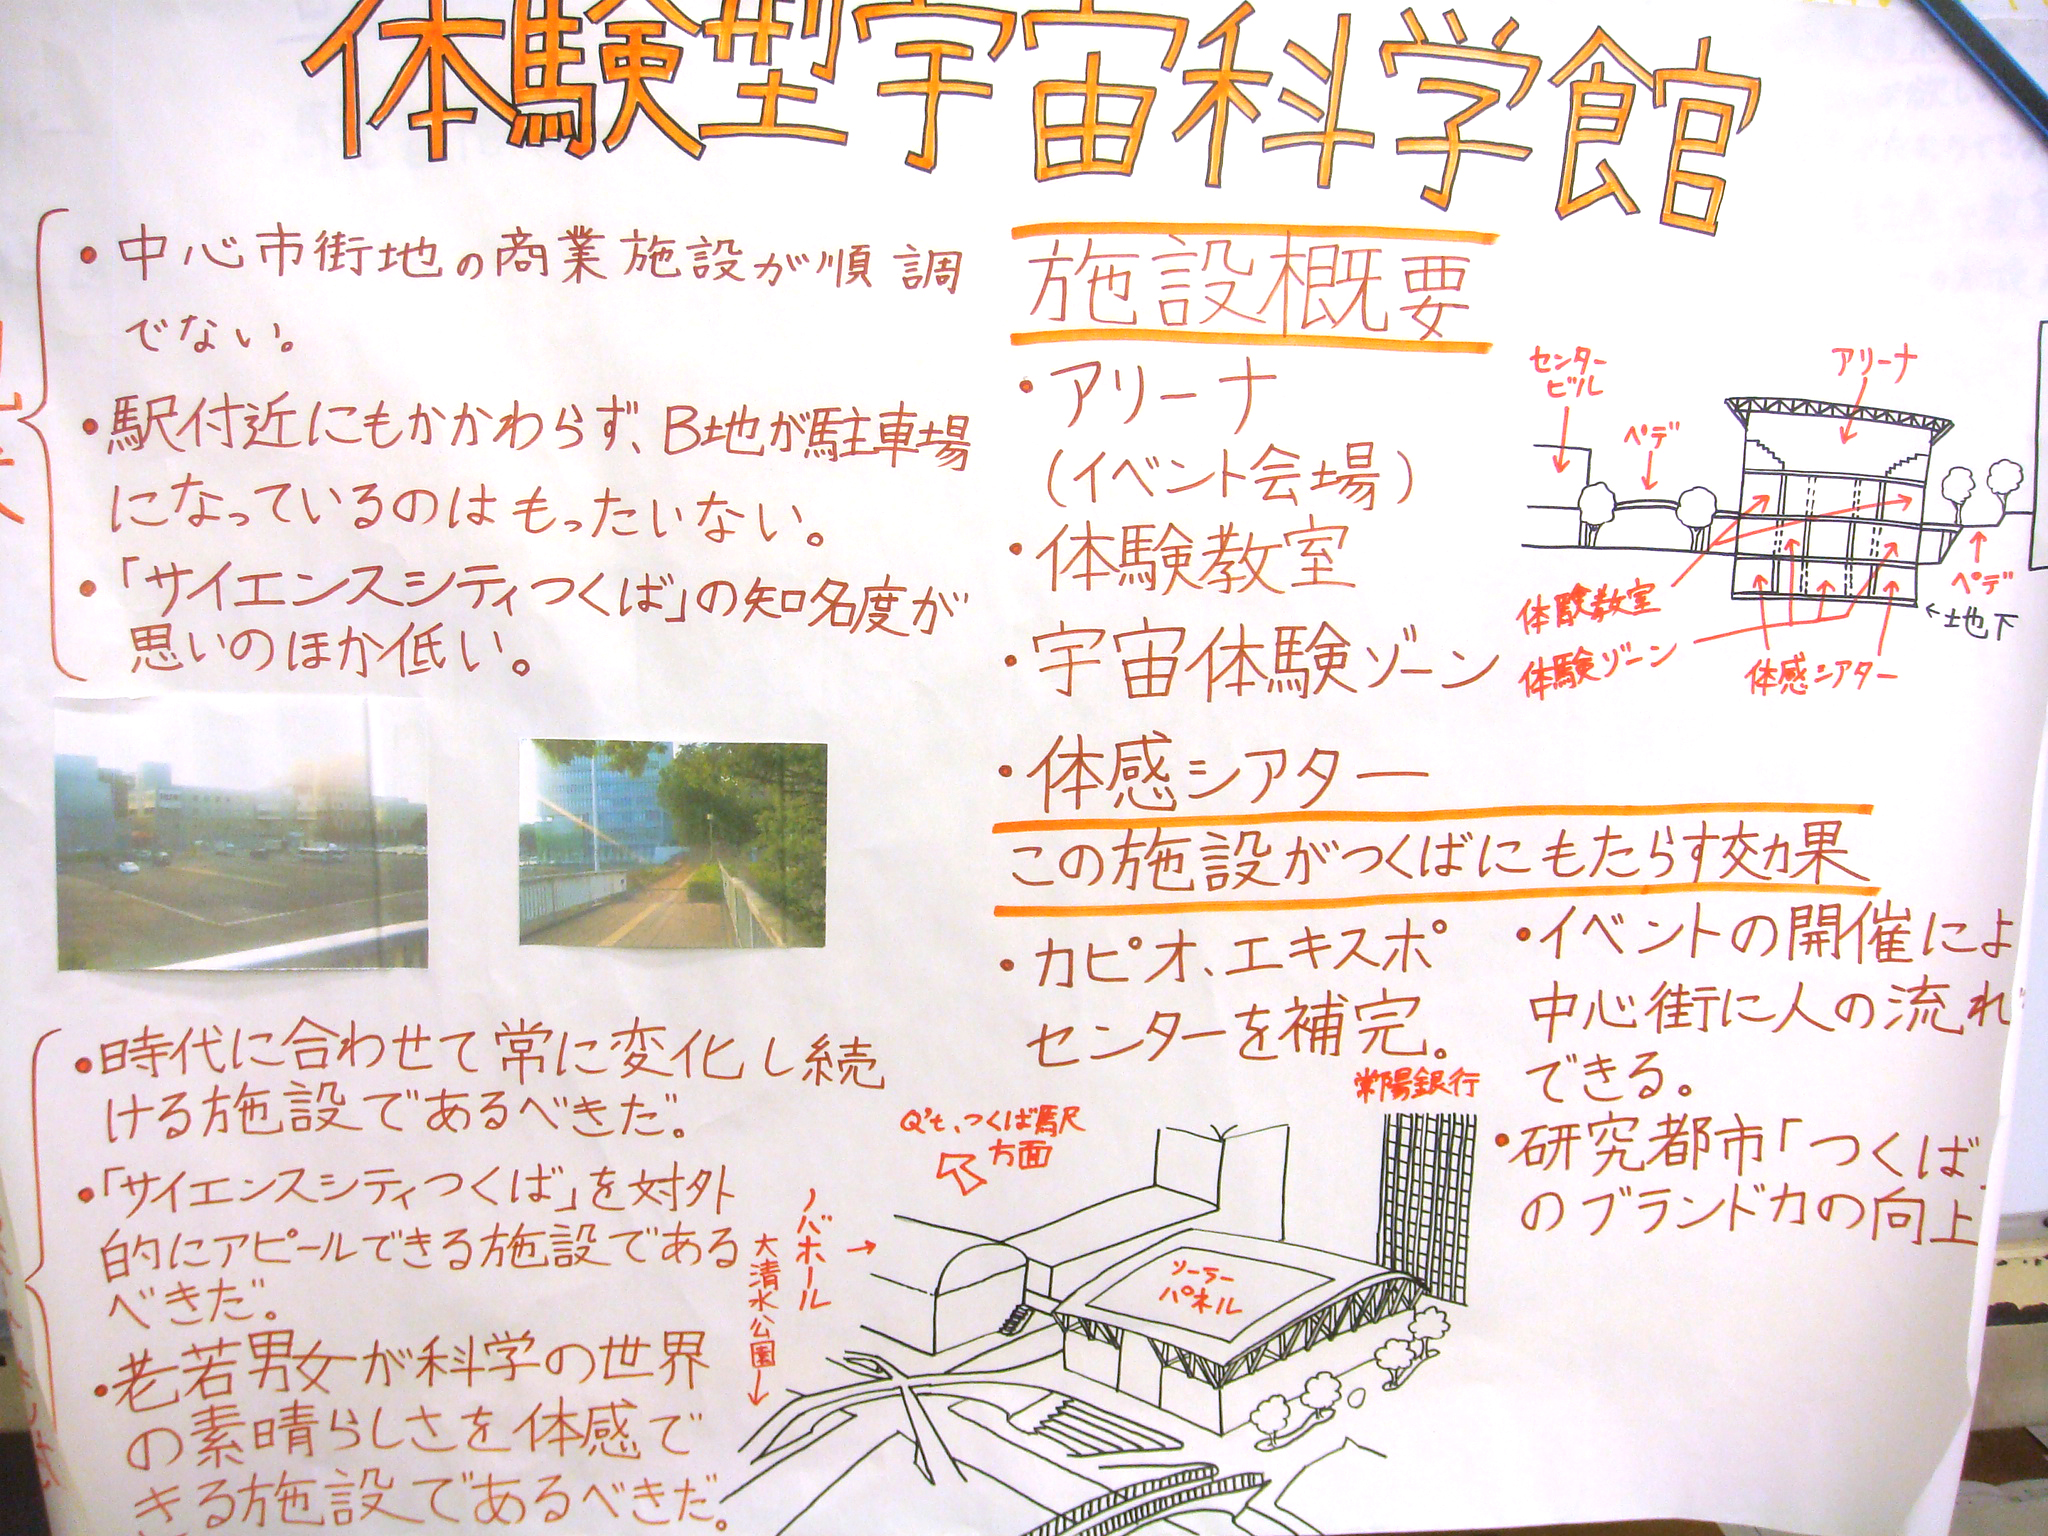 体験型宇宙科学館
・中心市街地の商業施設が順調
でない。
・駅付近にもかかわらず、B地が駐車場
になっているのはもったいない。
・「サイエンスシティつくば」の知名度が
思いのほか低い。
・時代に合わせて常に変化し続
ける施設であるべきだ。
・「サイエンスシティつくば」を対外
的にアピールできる施設である
べきだ。
・老若男女が科学の世界
の素晴らしさを体感で
きる施設であるべきだ。
施設概要
・アリーナ
(イベント会場)
・体験教室
・宇宙体験ゾーン
・体感シアター
センター
ビル
ペデ
アリーナ
ペデ
←地下
体験教室
体験ゾーン
体感シアター
この施設がつくばにもたらす効果
・カピオ、エキスポ
センターを補完。
・イベントの開催によ
中心街に人の流れ
できる。
・研究都市「つくば
のブランド力の向上
常陽銀行
Q't、つくば駅
方面
ノバホール
→
大清水公園→
ソーラー
パネル